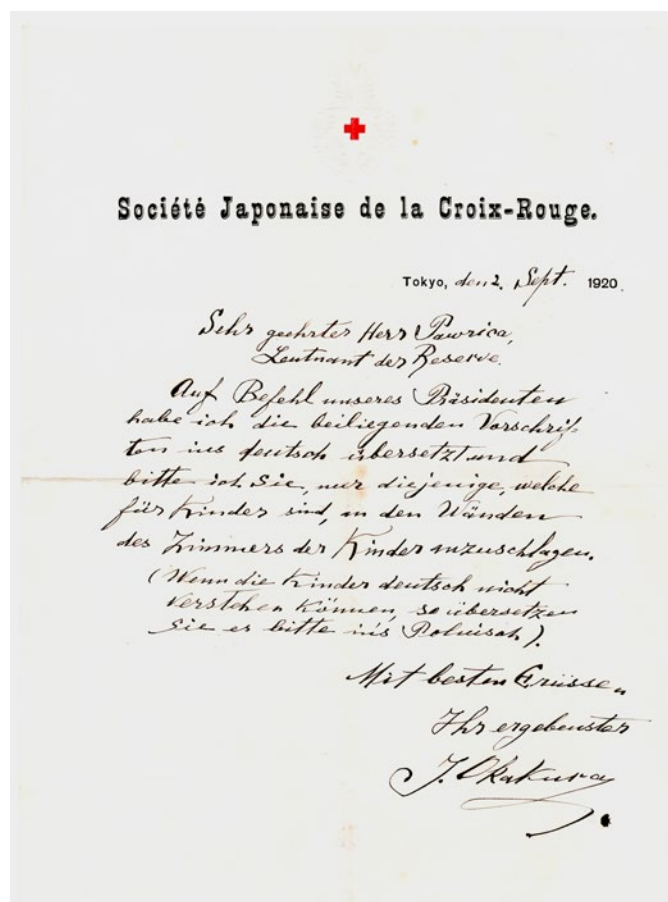 Société Japonaise de la Croix-Rouge.
Tokyo, den 2. Sept. 1920.
Sehr geehrter Herr Pawrica,
Leutnant der Reserve.
Auf Befehl unseres Präsidenten
habe ich die beiliegenden Vorschrif-
ten ins deutsch übersetzt und
bitte ich Sie, nur diejenige, welche
für Kinder sind, an den Wänden
des Zimmers der Kinder anzuschlagen.
(Wenn die Kinder deutsch nicht
verstehen können, so übersetzen
Sie es bitte in's Polnisch).
Mit besten Grüssen
Ihr ergebenster
J. Okakura